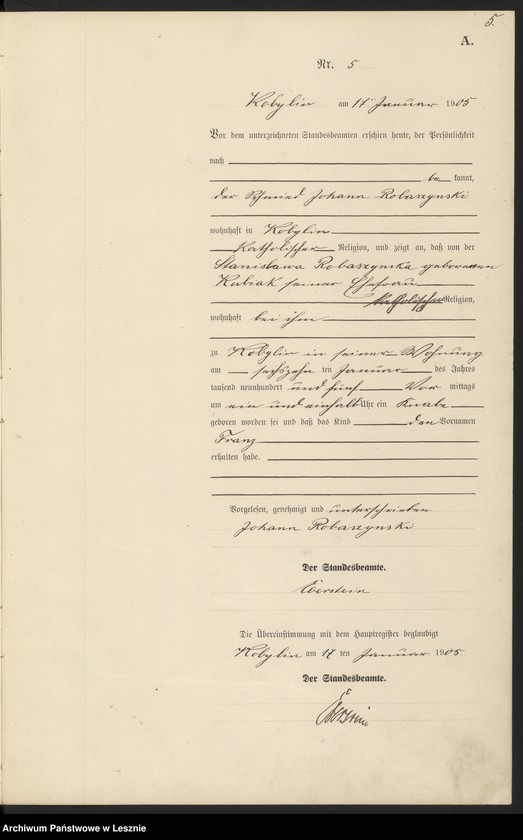 5.
A.
Nr. 5
Kobylin am 17ten Januar 1905
Vor dem unterzeichneten Standesbeamten erschien heute, der Persönlichkeit
nach
be kannt,
der Schmied Johann Robaszynski
wohnhaft in Kobylin
Katholischer Religion, und zeigt an, daß von der
Stanislawa Robaszynska geborenen
Kubiak seiner Ehefrau
Katholischer Religion,
wohnhaft bei ihm
zu Kobylin in seiner Wohnung
am sechszehn ten Januar des Jahres
tausend neunhundert und fünf Vor mittags
um ein und einhalb Uhr ein Knabe
geboren worden sei und daß das Kind den Vornamen
Franz
erhalten habe.
Vorgelesen, genehmigt und unterschrieben
Johann Robaszynski
Der Standesbeamte.
Eberstein
Die Übereinstimmung mit dem Hauptregister beglaubigt
Kobylin am 17 ten Januar 1905
Der Standesbeamte.
Eberstein
Archiwum Państwowe w Lesznie